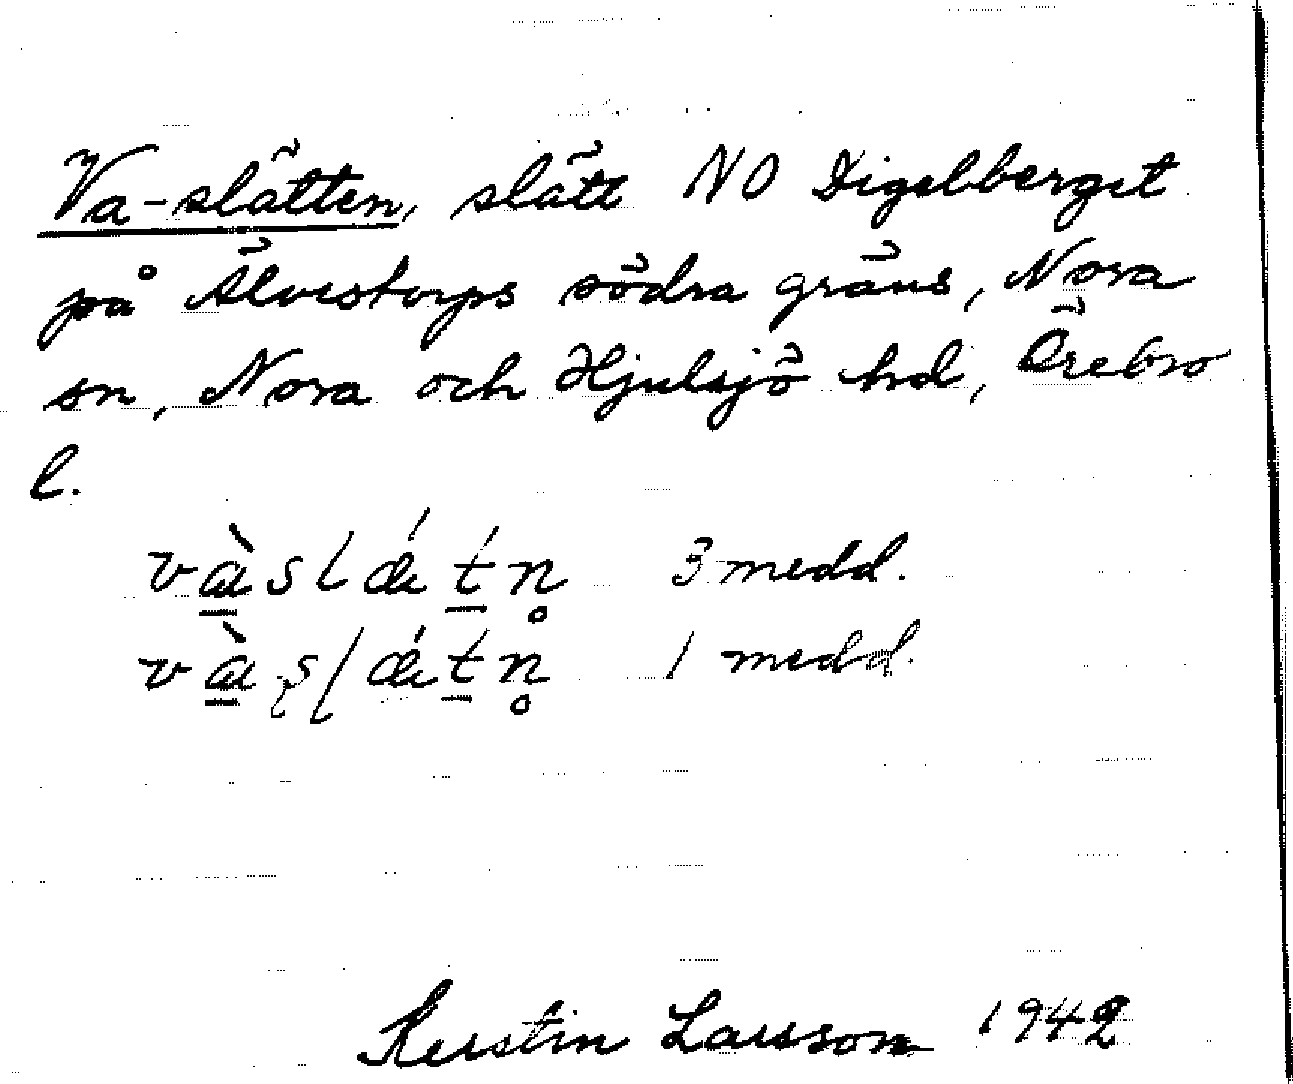 Va-slätten, slätt NO Digelberget
på Älvestorps södra gräns, Nora
sn, Nora och Hjulsjö hd, Örebro
l.
3 medd.
1 medd.
Kerstin Larsson 1942